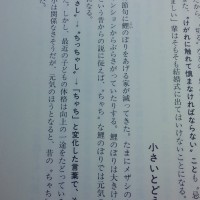 “けがれに触れて慎まなければならない”ことも、
ましい」輩はそもそも結婚式に出てはいけないことになる。
小さいとど
節句に鯉のぼりをあげる家が減ってきた。たまにメザシの
ンションからぶらさがっていたりする。鯉のぼりは大きけ
いという昔からの説に従えば、“ちゃち”な鯉のぼりでは元気
になる。
さし」→「ちっちゃし」→「ちゃち」と変化した言葉で、
た。しかし、最近の子どもの体格は向上の一途をたどってい
は関係なさそうだが、元気のほうとなると、昔の“ちゃち